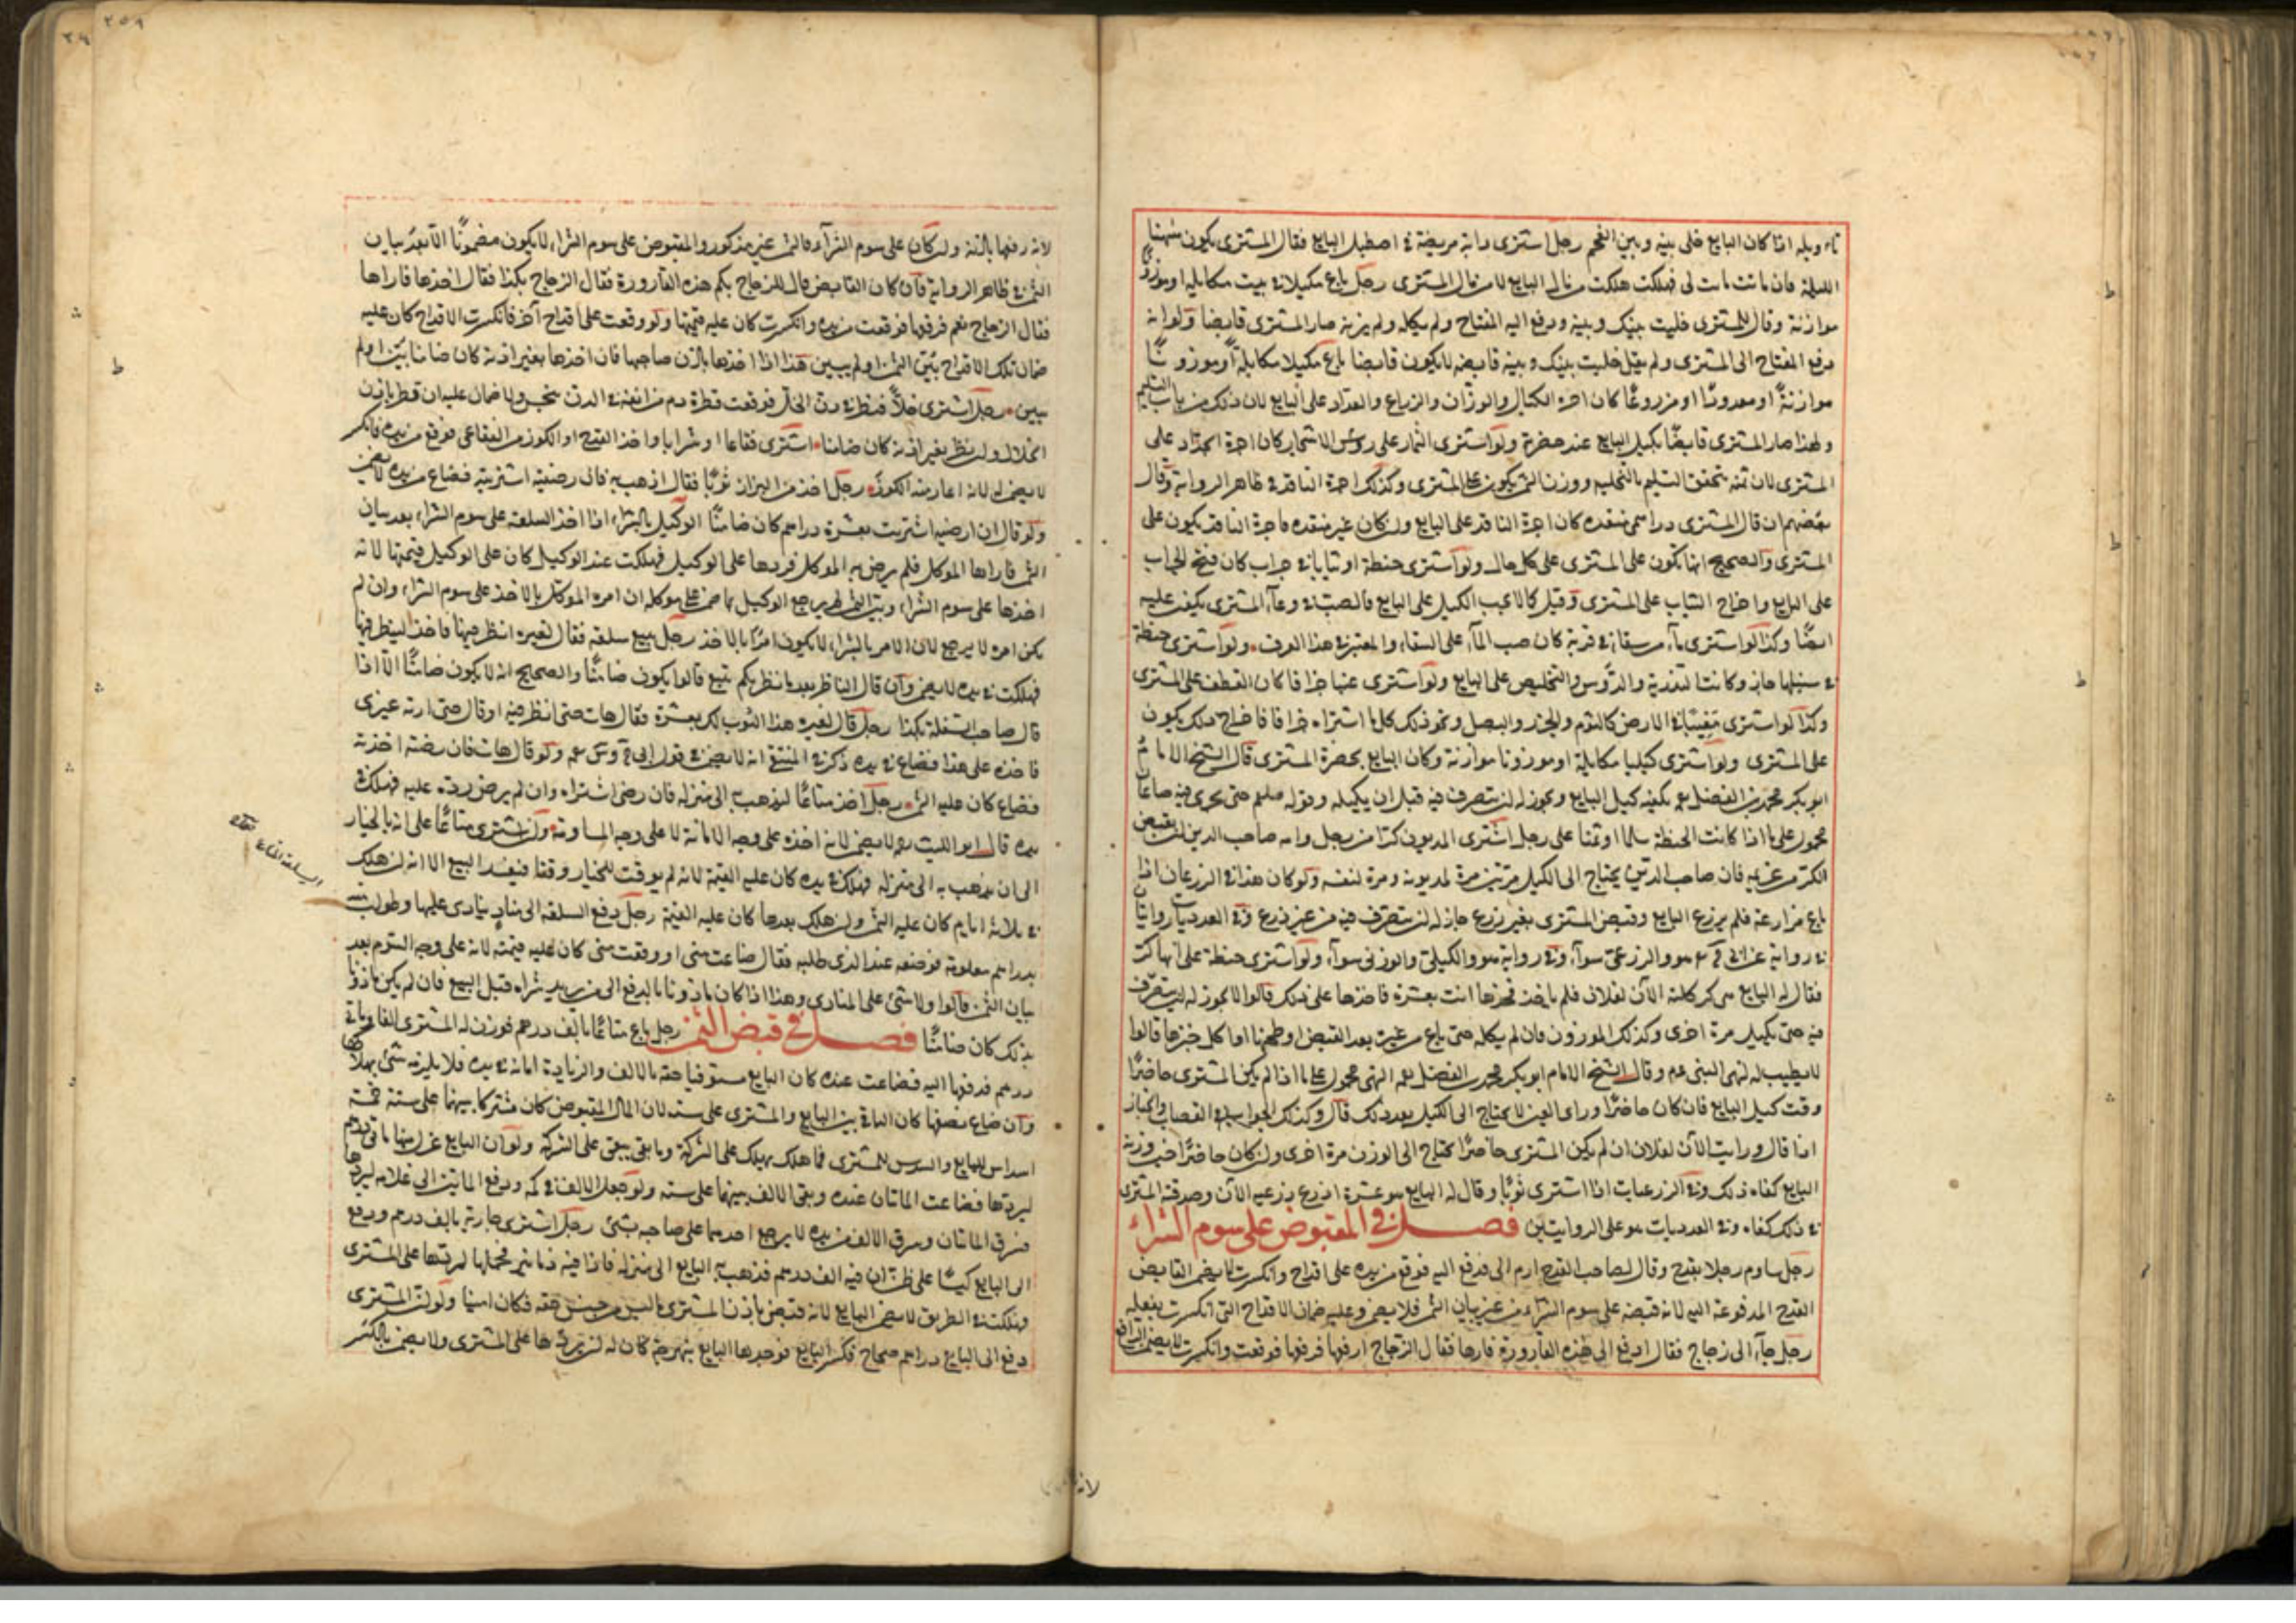 تاويله اذا كان البايع خلى بينه وبين الفحم رجل اشترى دابة مريضة في اصطبل البايع فقال المشترى يكون ههنا
الليلة فان ماتت ماتت لى فهلكت هلكت من مال البايع لا من مال المشترى رجل باع مكيلا في بيت مكايلة او موزونا
موازنة وقال للمشترى خليت بينك وبينه ودفع اليه المفتاح ولم يكله ولم يزنه صار المشترى قابضا ولو انه
دفع المفتاح الى المشترى ولم يقل خليت بينك وبينه قابضه لا يكون قابضا باع مكيلا مكايلة او موزونا
موازنة او معدودا او مزروعا كان اجرة الكيال والوزان والزراع والعداد على البايع لان ذلك من باب التسليم
ولهذا صار المشترى قابضا بكيل البايع عند حضرته ولو اشترى الثمار على رؤس الاشجار كان اجرة الجداد على
المشترى لان ثمه يتحقق التسليم بالتخلية ووزن الثمن يكون على المشترى وكذلك اجرة الناقد في ظاهر الرواية وقال
بعضهم ان قال المشترى دراهمى منتقده كان اجرة الناقد على البايع وان كان غير منتقده فاجرة الناقد يكون على
المشترى والصحيح انها تكون على المشترى على كل حال ولو اشترى حنطة او ثيابا في جراب كان فتح الجراب
على البايع واخراج الثياب على المشترى وقيل كما يجب الكيل على البايع فالصب في وعاء المشترى يكون عليه
ايضا وكذا لو اشترى ماء من سقا في قربة كان صب الماء على السقاء والمعتبر في هذا العرف ولو اشترى حنطة
في سنبلها جاز وكانت التذرية والدوس والتخليص على البايع ولو اشترى عنبا جزافا كان القطف على المشترى
وكذا لو اشترى مغيبا في الارض كالثوم والجزر والبصل ونحو ذلك كل ما اشتراه جزافا فاخراج ذلك يكون
على المشترى ولو اشترى كيليا مكايلة او موزونا موازنة وكان البايع بحضرة المشترى قال الشيخ الامام
ابو بكر محمد بن الفضل رحمه يكفيه كيل البايع ويجوز له ان يتصرف فيه قبل ان يكيله وقوله صلعم حتى يجرى فيه صاعان
محمول على ما اذا كانت الحنطة سلما او ثمنا على رجل اشترى المديون كرا من رجل وامر صاحب الدين ان يقبض
الكر من غريمه فان صاحب الدين يحتاج الى الكيل مرتين مرة لمديونه ومرة لنفسه ولو كان هذا في الزرعيات اذا
باع مزارعة فلم يزرع البايع وقبض المشترى بغير زرع جاز له ان يتصرف فيه من غير زرع وفي العدديات روايتان
في رواية عن ابى ح رحمه هو والزرعى سواء وفي رواية هو والكيلى والوزنى سواء ولو اشترى حنطة على انها كر
فقال له البايع هى كر كلته الآن لفلان فلم ياخذ فخذها انت بعشرة فاخذها على ذلك قالوا لا يجوز له ان يتصرف
فيه حتى يكيل مرة اخرى وكذلك الموزون فان لم يكله حتى باع من غيره بعد القبض او طحنها او اكل خبزها قالوا
لا يطيب له لنهى النبى عم وقال الشيخ الامام ابو بكر محمد بن الفضل رحمه النهى محمول على ما اذا لم يكن المشترى حاضرا
وقت كيل البايع فان كان حاضرا وراى العين لا يحتاج الى الكيل بعد ذلك قال وكذلك الجواب في القصاب والخباز
اذا قال وزنت الآن لفلان ان لم يكن المشترى حاضرا يحتاج الى الوزن مرة اخرى وان كان حاضرا حين وزنه
البايع كفاه ذلك وفي الزرعيات اذا اشترى ثوبا وقال له البايع هو عشرة اذرع بزرعيه الآن وصدقه المشترى
في ذلك كفاه وفي العدديات هو على الروايتين فصل في المقبوض على سوم الشراء
رجل ساوم رجلا بقدح وقال لصاحب القدح ارم الى فدفع اليه فوقع من يده على اقداح وانكسرت لا يضمن القابض
القدح المدفوعة اليه لانه قبضه على سوم الشراء من غير بيان الثمن فلا يضمن وعليه ضمان الاقداح التى انكسرت بفعله
رجل جاء الى زجاج فقال ادفع الى هذه القارورة فارها فقال الزجاج ارفعها فرفعها فوقعت وانكسرت لا يضمن الرافع
لانه رفعها باذنه وان كان على سوم الشراء فالثمن غير مذكور والمقبوض على سوم الشراء لا يكون مضمونا الا بعد بيان
الثمن في ظاهر الرواية فان كان القابض قال للزجاج بكم هذه القارورة فقال الزجاج بكذا فقال اخذها فاراها
فقال الزجاج نعم فرفعها فوقعت من يده وانكسرت كان عليه قيمتها ولو وقعت على اقداح آخر فانكسرت الاقداح كان عليه
ضمان تلك الاقداح بين الثمن او لم يبين هذا اذا اخذها باذن صاحبها فان اخذها بغير اذنه كان ضامنا بين او لم
يبين رجل اشترى خلا فنظر في دن الخل فوقعت قطرة دم من انفه في الدن ينجس ولا ضمان عليه ان نظر باذن
الخلال وان نظر بغير اذنه كان ضامنا اشترى فقاعا او شرابا واخذ القدح او الكوز من الفقاعى فوقع من يده فانكسر
لا يضمن لانه اعار منه الكوز رجل اخذ من البزاز ثوبا فقال اذهب به فان رضيته اشتريته فضاع من يده لا يضمن
ولو قال ان ارضيه اشتريت بعشرة دراهم كان ضامنا الوكيل بالشراء اذا اخذ السلعة على سوم الشراء بعد بيان
الثمن فاراها الموكل فلم يرض به الموكل فردها على الوكيل فهلكت عند الوكيل كان على الوكيل قيمتها لانه
اخذها على سوم الشراء وبين الثمن ثم يرجع الوكيل بما ضمن على موكله ان امره الموكل بالاخذ على سوم الشراء وان لم
يكن امره لا يرجع لان الامر بالشراء لا يكون امرا بالاخذ رجل يبيع سلعة فقال لغيره انظر فيها فاخذ لينظر فيها
فهلكت في يده لا يضمن وان قال الناظر بعد ما نظر بكم تبيع قالوا يكون ضامنا والصحيح انه لا يكون ضامنا الا اذا
قال صاحب السلعة بكذا رجل قال لغيره هذا الثوب لك بعشرة فقال هات حتى انظر فيه او قال حتى اريه غيرى
فاخذه على هذا فضاع في يده ذكر في المنتقى انه لا يضمن في قول ابى ح وس رحمه ولو قال هات فان رضيته اخذته
فضاع كان عليه الثمن رجل اخذ متاعا ليذهب به الى منزله فان رضى اشتراه وان لم يرض رده عليه فهلك في
يده قال ابو الليث رحمه لا يضمن لانه اخذه على وجه الامانة لا على وجه المساومة ولو اشترى متاعا على انه بالخيار
الى ان يذهب به الى منزله فهلك في يده كان عليه القيمة لانه لم يوقت للخيار وقتا فيفسد البيع الا انه ان هلك
في ثلاثة ايام كان عليه الثمن وان هلك بعدها كان عليه القيمة رجل دفع السلعة الى مناد ينادى عليها وطولب منه
بدراهم معلومة فوضعه عند الذى طلبه فقال ضاعت منى او وقعت منى كان عليه قيمته لانه على وجه السوم بعد
بيان الثمن قالوا ولا شئ على المنادى وهذا اذا كان ماذونا بالدفع الى من يريد شراه قبل البيع فان لم يكن ماذونا
بذلك كان ضامنا فصل في قبض الثمن رجل باع متاعا بالف درهم فوزن له المشترى الفا ومائتى
درهم فدفعها اليه فضاعت عنده كان البايع مستوفيا حقه بالالف والزيادة امانة في يده فلا يلزمه شئ بهلاكها
وان ضاع نصفها كان الباقى بين البايع والمشترى على ستة لان المال المقبوض كان مشتركا بينهما على ستة خمسة
اسداس للبايع والسدس للمشترى فما هلك يهلك على الشركة وما بقى يبقى على الشركة ولو ان البايع عزل منها مائتى درهم
ليردها فضاعت المائتان عنده وبقى الالف بينهما على ستة ولو جعل الالف في كمه ودفع المائتين الى غلامه ليردها
فسرق المائتان وسرق الالف من يده لا يرجع احدهما على صاحبه بشئ رجل اشترى جارية بالف درهم ودفع
الى البايع كيسا على ظن ان فيه الف درهم فذهب به البايع الى منزله فاذا فيه دنانير فحملها ليردها على المشترى
فهلكت في الطريق لا يضمن البايع لانه قبض باذن المشترى ما ليس من جنس حقه فكان امينا ولو ان المشترى
دفع الى البايع دراهم صحاح فكسر البايع فوجدها البايع بنهرجة كان له ان يردها على المشترى ولا يضمن بالكسر